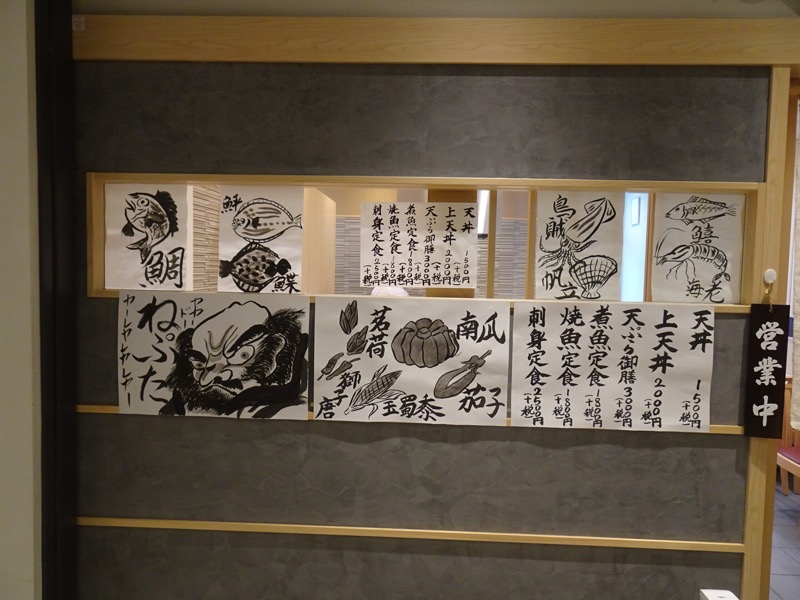 鯛
鮃
鰈
天丼 1500円(+税)
上天丼 2000円(+税)
天ぷら御膳 3000円(+税)
煮魚定食 1800円(+税)
焼魚定食 1800円(+税)
刺身定食 2500円(+税)
烏賊
帆立
鱚
海老
ねぷた
茗荷
南瓜
獅子唐
玉蜀黍
茄子
天丼 1500円(+税)
上天丼 2000円(+税)
天ぷら御膳 3000円(+税)
煮魚定食 1800円(+税)
焼魚定食 1800円(+税)
刺身定食 2500円(+税)
営業中